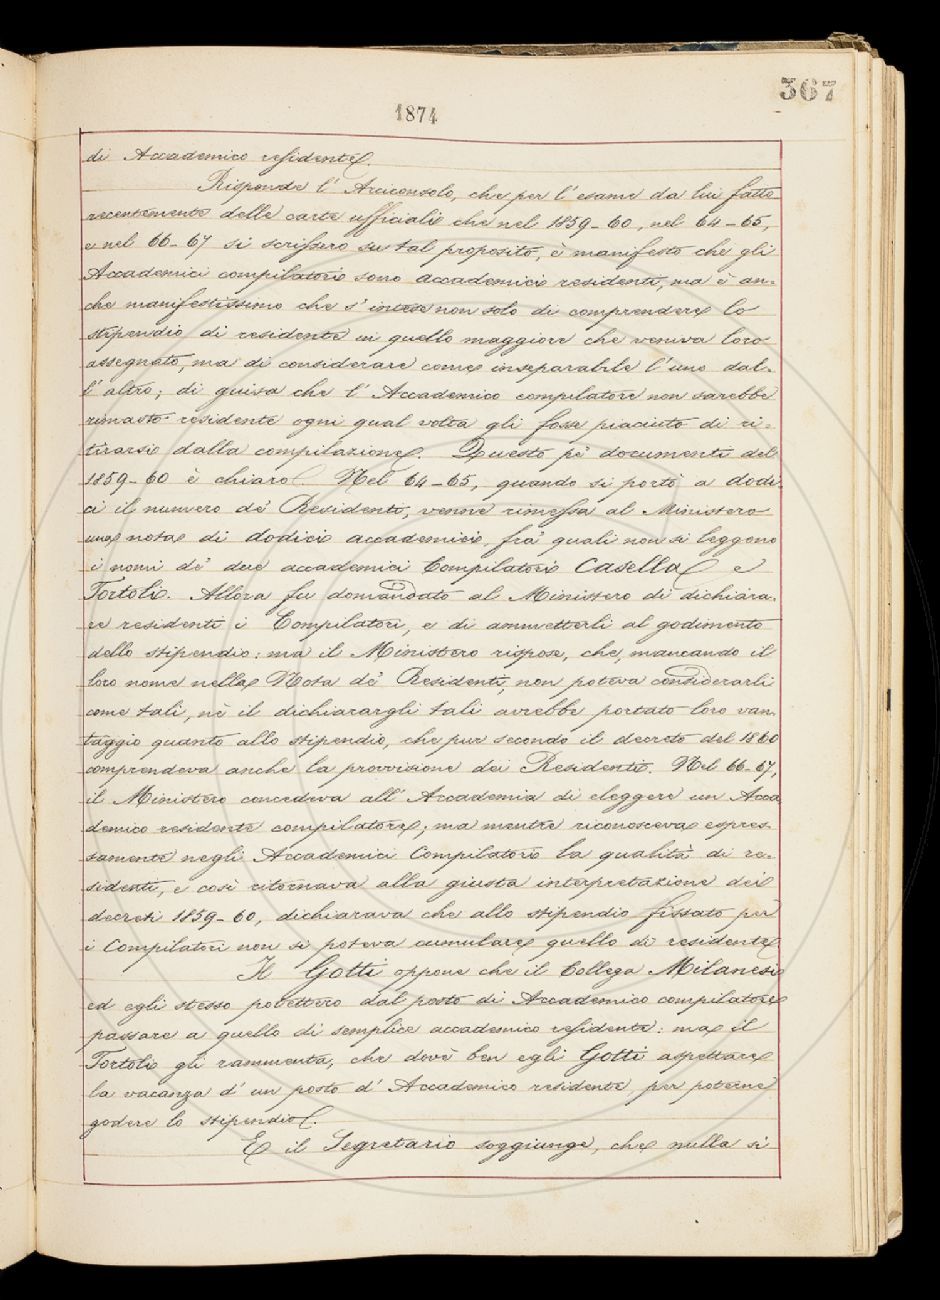 367
1874
di Accademico residente.
Risponde l' Arciconsolo, che per l' esame da lui fatto
recentemente delle carte ufficiali che nel 1859-60, nel 64-65,
e nel 66-67 si scrissero su tal proposito, è manifesto che gli
Accademici compilatori sono accademici residenti, ma è an-
che manifestissimo che s' intese non solo di comprendere lo
stipendio di residente in quello maggiore che veniva loro
assegnato, ma di considerare come inseparabile l' uno dal-
l' altro; di guisa che l' Accademico compilatore non sarebbe
rimasto residente ogni qual volta gli fosse piaciuto di ri-
tirarsi dalla compilazione. Questo pe' documenti del
1859-60 è chiaro. Nel 64-65, quando si portò a dodi
ci il numero de' Residenti, venne rimessa al Ministero
una nota di dodici accademici, fra' quali non si leggono
i nomi de' due accademici Compilatori Casella e
Tortoli. Allora fu domandato al Ministero di dichiara-
re residenti i Compilatori, e di ammetterli al godimento
dello stipendio: ma il Ministero rispose, che, mancando il
loro nome nella Nota de' Residenti, non poteva considerarli
come tali, nè il dichiarargli tali avrebbe portato loro van-
taggio quanto allo stipendio, che pur secondo il decreto del 1860
comprendeva anche la provvisione dei Residenti. Nel 66-67,
il Ministero concedeva all' Accademia di eleggere un Acca
demico residente compilatore; ma mentre riconosceva espres-
samente negli Accademici Compilatori la qualità di re-
sidenti, e così ritornava alla giusta interpretazione dei
decreti 1859-60, dichiarava che allo stipendio fissato per
i Compilatori non si poteva cumulare quello di residente
Il Gotti oppone che il Collega Milanesi
ed egli stesso potettero dal posto di Accademico compilatore
passare a quello di semplice accademico residente: ma il
Tortoli gli rammenta, che dovè ben egli Gotti aspettare
la vacanza d' un posto d' Accademico residente, per poterne
godere lo stipendio.
E il Segretario soggiunge, che nulla si